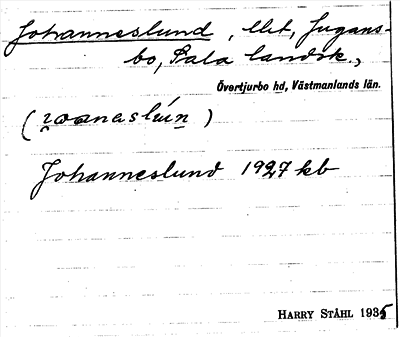 Johanneslund, lht, Jugans-
bo, Sala landsk.,
Övertjurbo hd, Västmanlands län.
Johanneslund 1927 kb
HARRY STÅHL 1935